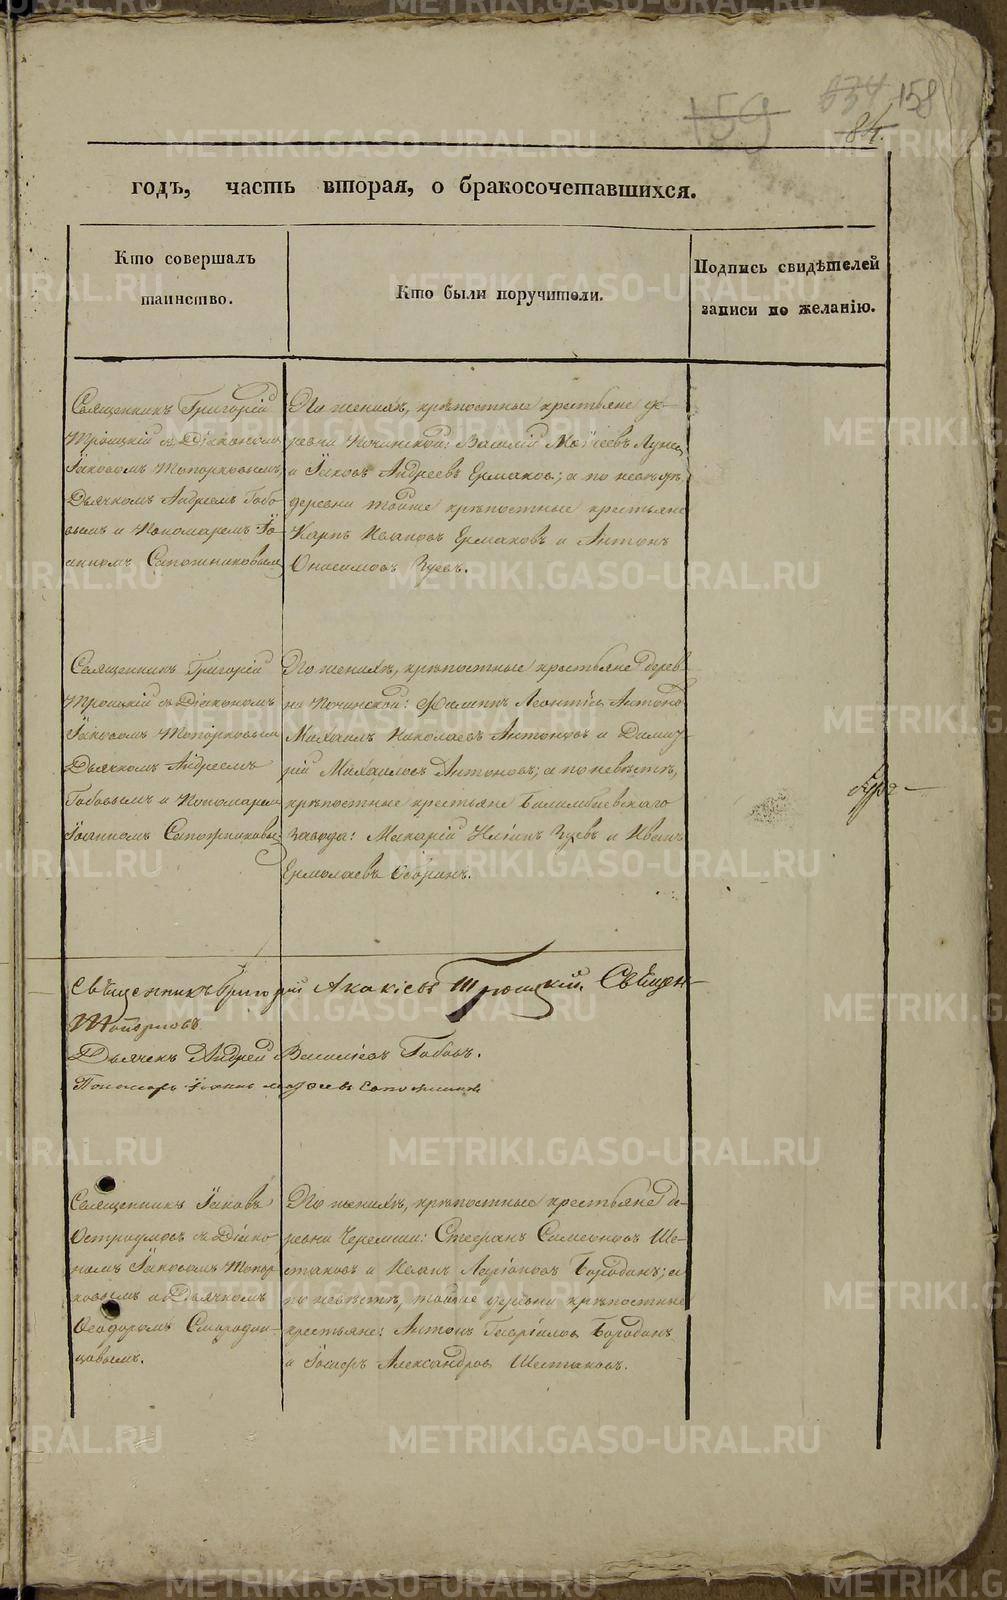 159 634 158
84.
годъ, часть вторая, о бракосочетавшихся.
Кто совершалъ
таинство.
Кто были поручители.
Подпись свидѣтелей
записи по желанію.
Священникъ Григорій
Троицкій съ Діакономъ
Іаковомъ Топорковымъ,
Дьячкомъ Андреемъ Бабо-
вымъ и Пономаремъ Іо-
анномъ Сапожниковымъ
По женихѣ, крѣпостные крестьяне де-
ревни Починской: Василій Моѵсеевъ
и Іаковъ Андреевъ Ермаковъ; а по невѣстѣ,
деревни тойже крѣпостные крестьяне
Карпъ Ивановъ Ермаковъ и Антонъ
Онисимовъ Зуевъ.
Священникъ Григорій
Троицкій съ Діакономъ
Іаковомъ Топорковымъ
Дьячкомъ Андреемъ
Бабовымъ и Пономаремъ
Іоанномъ Сапожниковымъ
По женихѣ, крѣпостные крестьяне дерев-
ни Починской: Филиппъ Леонтіевъ Антоновъ
Михаилъ Николаевъ Антоновъ и Димит-
рій Михайловъ Антоновъ; а по невѣстѣ,
крѣпостные крестьяне Билимбаевскаго
Завода: Макарій Зуевъ и Иванъ
Ермолаевъ
Священникъ Григорій Акакіевъ Троицкій. Священ-
Топорковъ
Дьячекъ Андрей Василіевъ Бабовъ.
Пономарь Іоаннъ Сапожниковъ
Священникъ Іаковъ
Остроумовъ съ Діако-
номъ Іаковомъ Топор-
ковымъ и Дьячкомъ
Ѳеодоромъ Смородин-
цовымъ.
По женихѣ, крѣпостные крестьяне де-
ревни Черемши: Стефанъ Симеоновъ Ше-
стаковъ и Иванъ Ларіоновъ Бородинъ; а
по невѣстѣ, тойже деревни крѣпостные
крестьяне: Антонъ Гавріиловъ Бородинъ
и Іосифъ Александровъ Шестаковъ.
METRIKI.GASO-URAL.RU